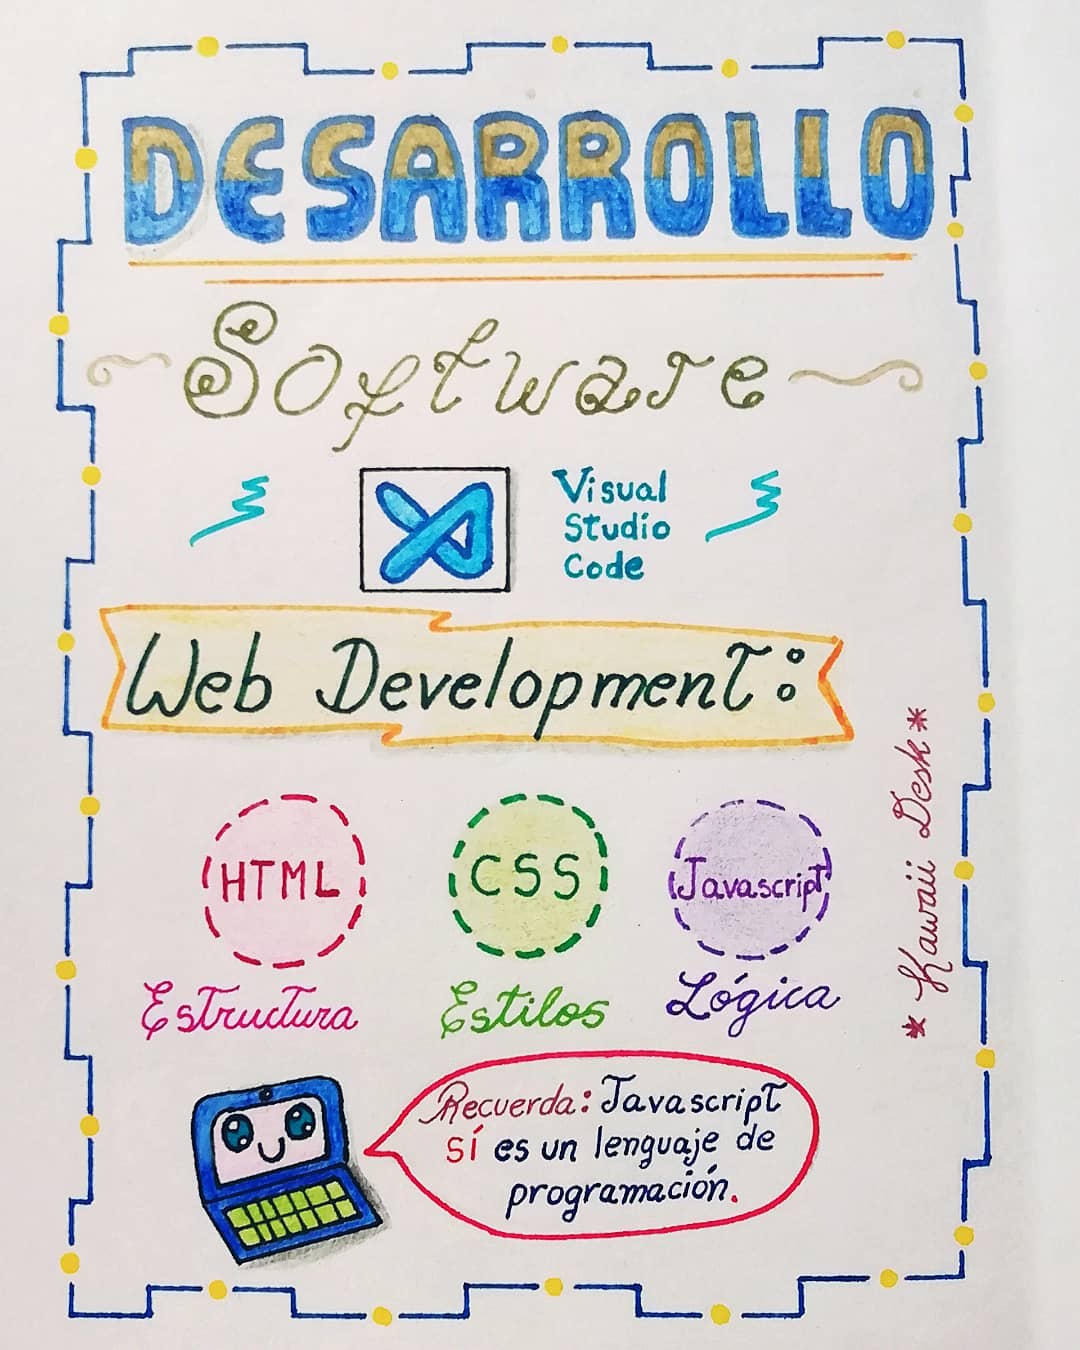 DESARROLLO
Software
Visual
Studio
Code
Web Development:
HTML
CSS
Javascript
Estructura
Estilos
Lógica
* Kawaii Desk *
Recuerda: Javascript
sí es un lenguaje de
programación.